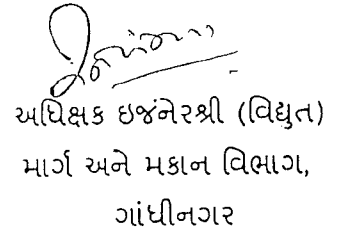 અધિક્ષક ઇજનેરશ્રી (વિદ્યુત)
માર્ગ અને મકાન વિભાગ,
ગાંધીનગર